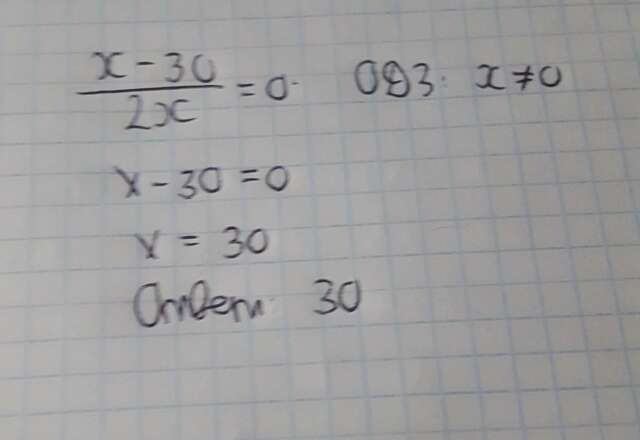 x - 30 / 2x = 0. ОДЗ: x ≠ 0
x - 30 = 0
x = 30
Ответ: 30